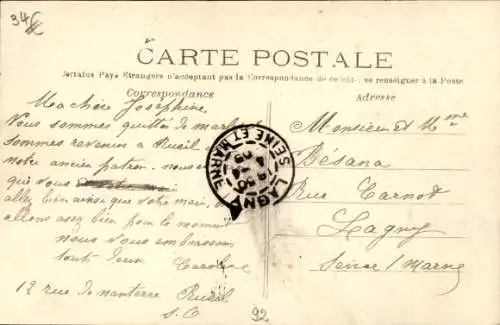 34
CARTE POSTALE
Certains Pays Étrangers n'acceptant pas la Correspondance de ce côté, se renseigner à la Poste
Correspondance
Adresse
Ma chère Joséphine
Nous sommes quittés de
sommes revenus à Rueil
notre ancien patron. nous
que vous
allez bien ainsi que votre mari,
allons assez bien pour le moment
nous vous embrassons
tout deux Caroline
12 rue de nanterre Rueil
S. O
Monsieur et Mme
Bésana
Rue Carnot
Lagny
Seine / Marne
LAGNY
SEINE ET MARNE
92